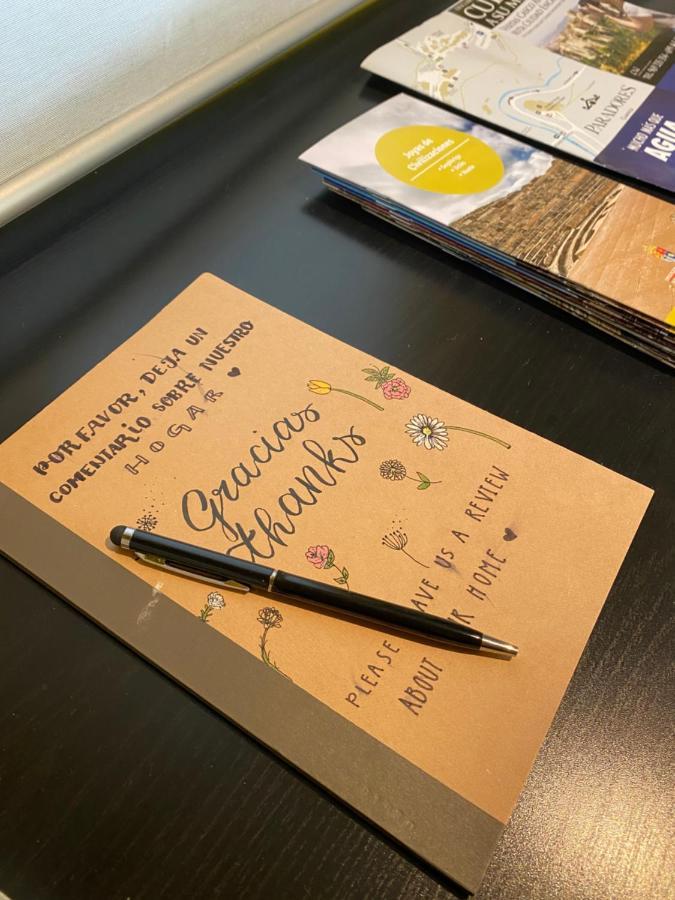 POR FAVOR, DEJA UN
COMENTARIO SOBRE NUESTRO
HOGAR
Gracias
thanks
PLEASE AVE US A REVIEW
ABOUT R HOME
Joyas de
Civilizaciones
PARADORES
MUCHO MÁS QUE
AGUA